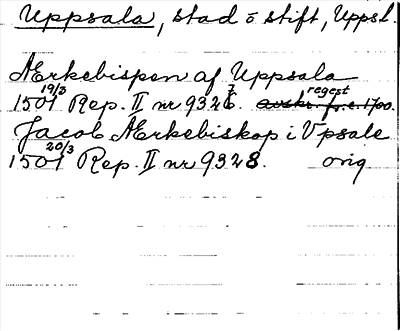 Uppsala, stad o stift, Uppsl.
Ærkebispen af Uppsala
1501 19/3 Rep. II nr 9327. regest
Jacob Ærkebiskop i Vpsale
1501 20/3 Rep. II nr 9328. orig